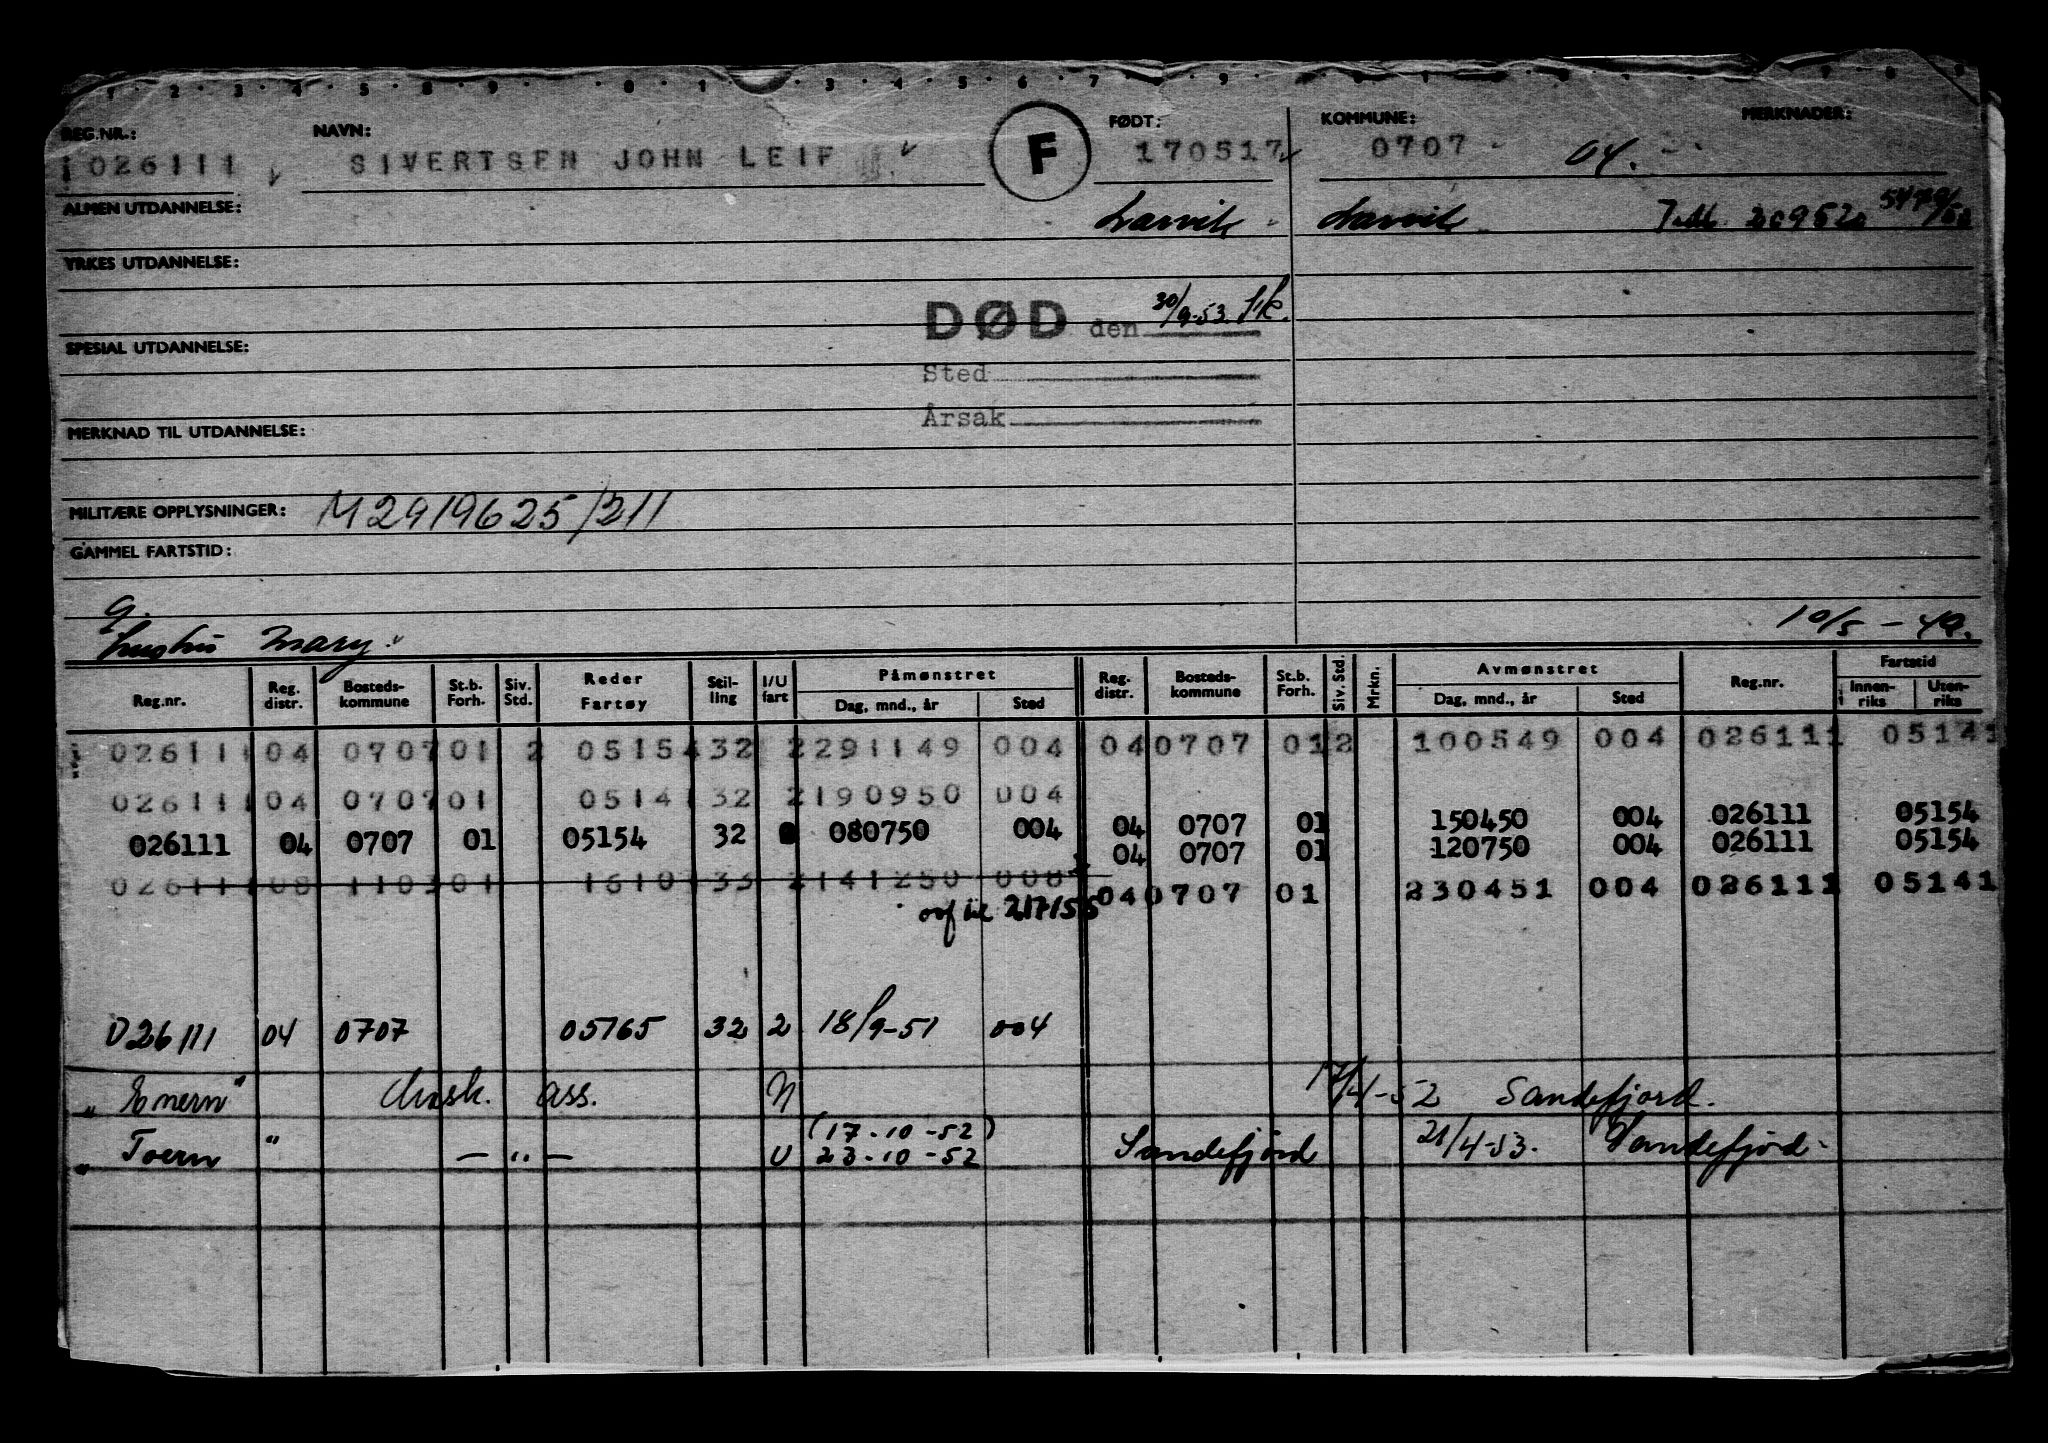 REG.NR.: NAVN: F FØDT: KOMMUNE: MERKNADER:
1026111 SIVERTSEN JOHN LEIF 170517 0707 04.
ALMEN UTDANNELSE: Larvik Larvik
YRKES UTDANNELSE:
DØD den 30/9-53.
SPESIAL UTDANNELSE:
Sted
Årsak
MERKNAD TIL UTDANNELSE:
MILITÆRE OPPLYSNINGER: M2919625/211
GAMMEL FARTSTID:
G.
hustru Mary. 10/5-49.
Reg.nr. Reg. distr. Bosteds-kommune St.b. Forh. Siv. Std. Reder Fartøy Stil-ling I/U fart Påmønstret Dag, mnd., år Sted Reg. distr. Bosteds-kommune St.b. Forh. Siv. Std. Mrkn. Avmønstret Dag, mnd., år Sted Reg.nr. Fartstid Innen-riks Uten-riks
026111 04 0707 01 2 05154 32 2 291149 004 04 0707 01 2 100549 004 026111 05141
026111 04 0707 01 05141 32 2 190950 004
04 0707 01 150450 004 026111 05154
026111 04 0707 01 05154 32 080750 004
04 0707 01 120750 004 026111 05154
026111 08 110301 16101 33 2 141250 008
04 0707 01 230451 004 026111 05141
026111 04 0707 05765 32 2 18/9-51 004
"Enern" Mask. ass. N 17/4-52 Sandefjord.
"Toern" — " — U (17-10-52) 23-10-52 Sandefjord 21/4-53. Sandefjord